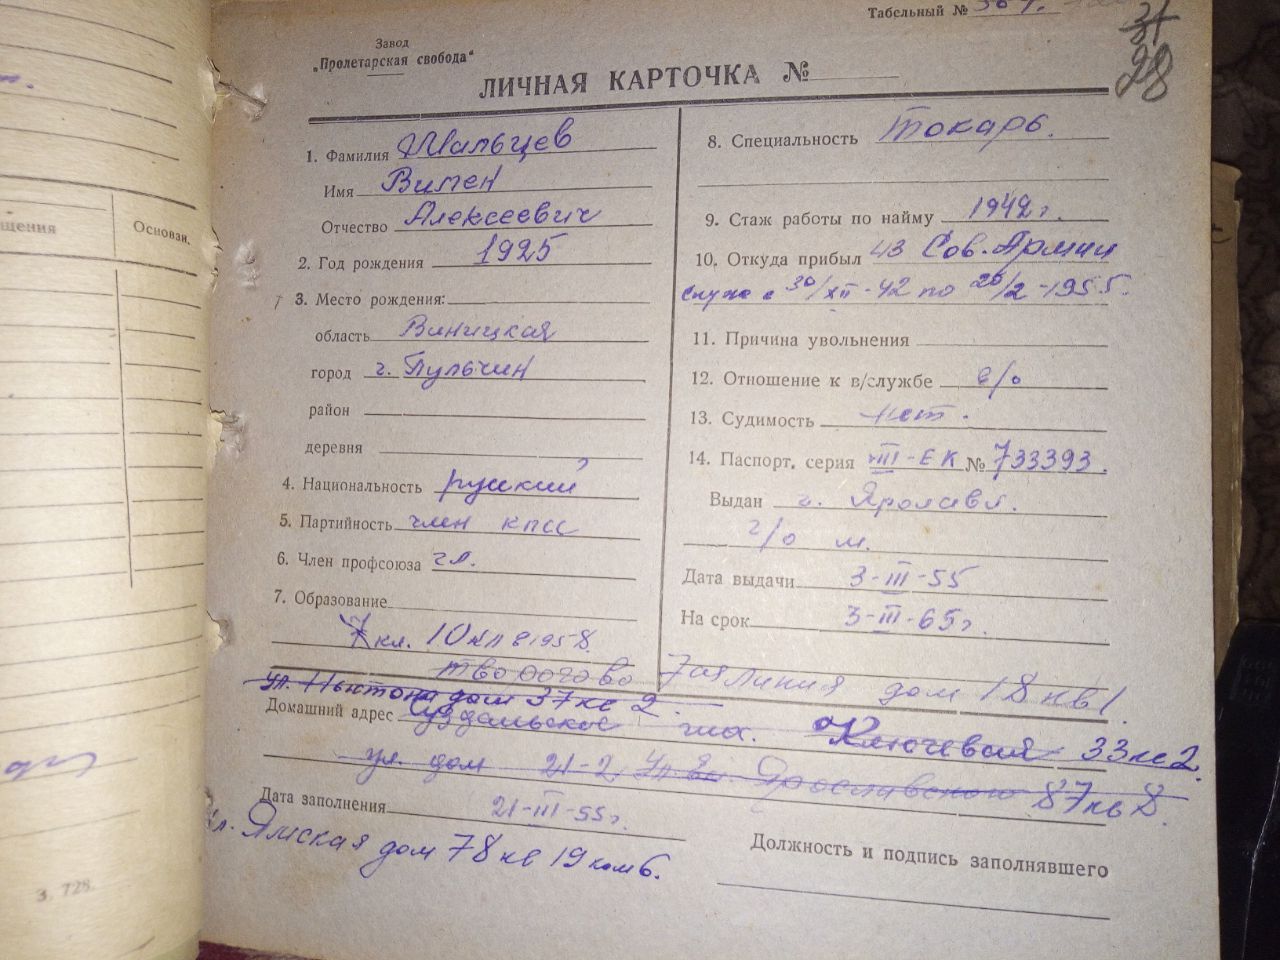 Табельный № 367.
31
98
Завод
„Пролетарская свобода"
ЛИЧНАЯ КАРТОЧКА №
1. Фамилия Мальцев
Имя Вилен
Отчество Алексеевич
2. Год рождения 1925
3. Место рождения:
область Виницкая
город г. Тульчин
район
деревня
4. Национальность русский
5. Партийность член кпсс
6. Член профсоюза чл.
7. Образование
7 кл. 10 кл в 1958
8. Специальность Токарь.
9. Стаж работы по найму 1942 г.
10. Откуда прибыл из Сов. Армии
служ с 30/XII-42 по 26/2-1955.
11. Причина увольнения
12. Отношение к в/службе в/о
13. Судимость нет.
14. Паспорт, серия VIII-ЕК № 733393.
Выдан г. Яросл.
г/о м.
Дата выдачи 3-III-55
На срок 3-III-65 г.
7ая линия дом 18 кв 1.
ул. Ньютона дом 37 кв 2.
Домашний адрес Суздальское шос. Ключевая 33 кв 2.
ул. дом 21-2, Ярославского 87 кв 8.
Дата заполнения 21-III-55 г.
ул. Ямская дом 78 кв 19 ком 6.
Должность и подпись заполнявшего
щения
Основан.
З. 728